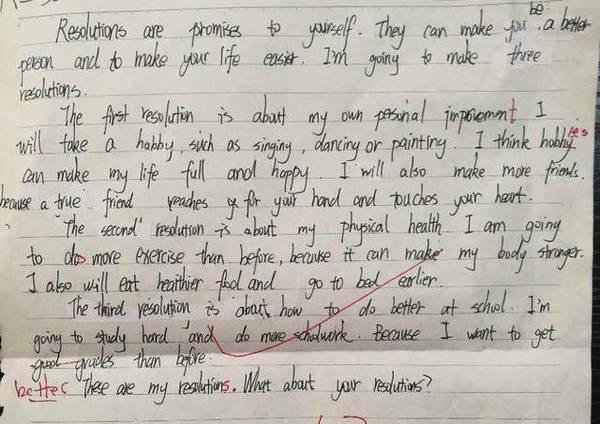 Resolutions are promises to yourself. They can make you be a better
person and to make your life easier. I'm going to make three
resolutions.
The first resolution is about my own personal improvement I
will take a habby, such as singing, dancing or painting. I think hobbyies
can make my life full and happy. I will also make more friends.
because a true friend reaches for your hand and touches your heart.
The second resolution is about my physical health. I am going
to do more exercise than before, because it can make my body stronger.
I also will eat healthier food and go to bed earlier.
The third resolution is about how to do better at school. I'm
going to study hard and do more schoolwork. Because I want to get
good grades than before.
better These are my resolutions. What about your resolutions?